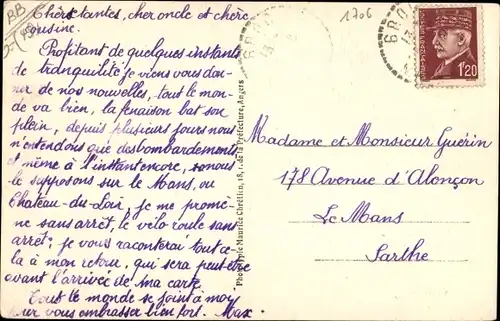 1706
Chères tantes, cher oncle et chère
cousine.
Profitant de quelques instants
de tranquilité je viens vous don-
ner de nos nouvelles, tout le mon-
de va bien, la fenaison bat son
plein, depuis plusieurs jours nous
n'entendons que des bombardements
et même à l'instant encore, nous
le supposons sur le Mans, ou
Château-du-Loir, je me promè-
ne sans arrêt, le vélo roule sans
arrêt; je vous raconterai tout ce-
la à mon retour, qui sera peut-être
avant l'arrivée de ma carte.
Tout le monde se joint à moi
pour vous embrasser bien fort. Max
Phototypie Maurice Chrétien, 18, r. de la Préfecture, Angers
1f20
Madame et Monsieur Guérin
178 Avenue d'Alonçon
Le Mans
Sarthe